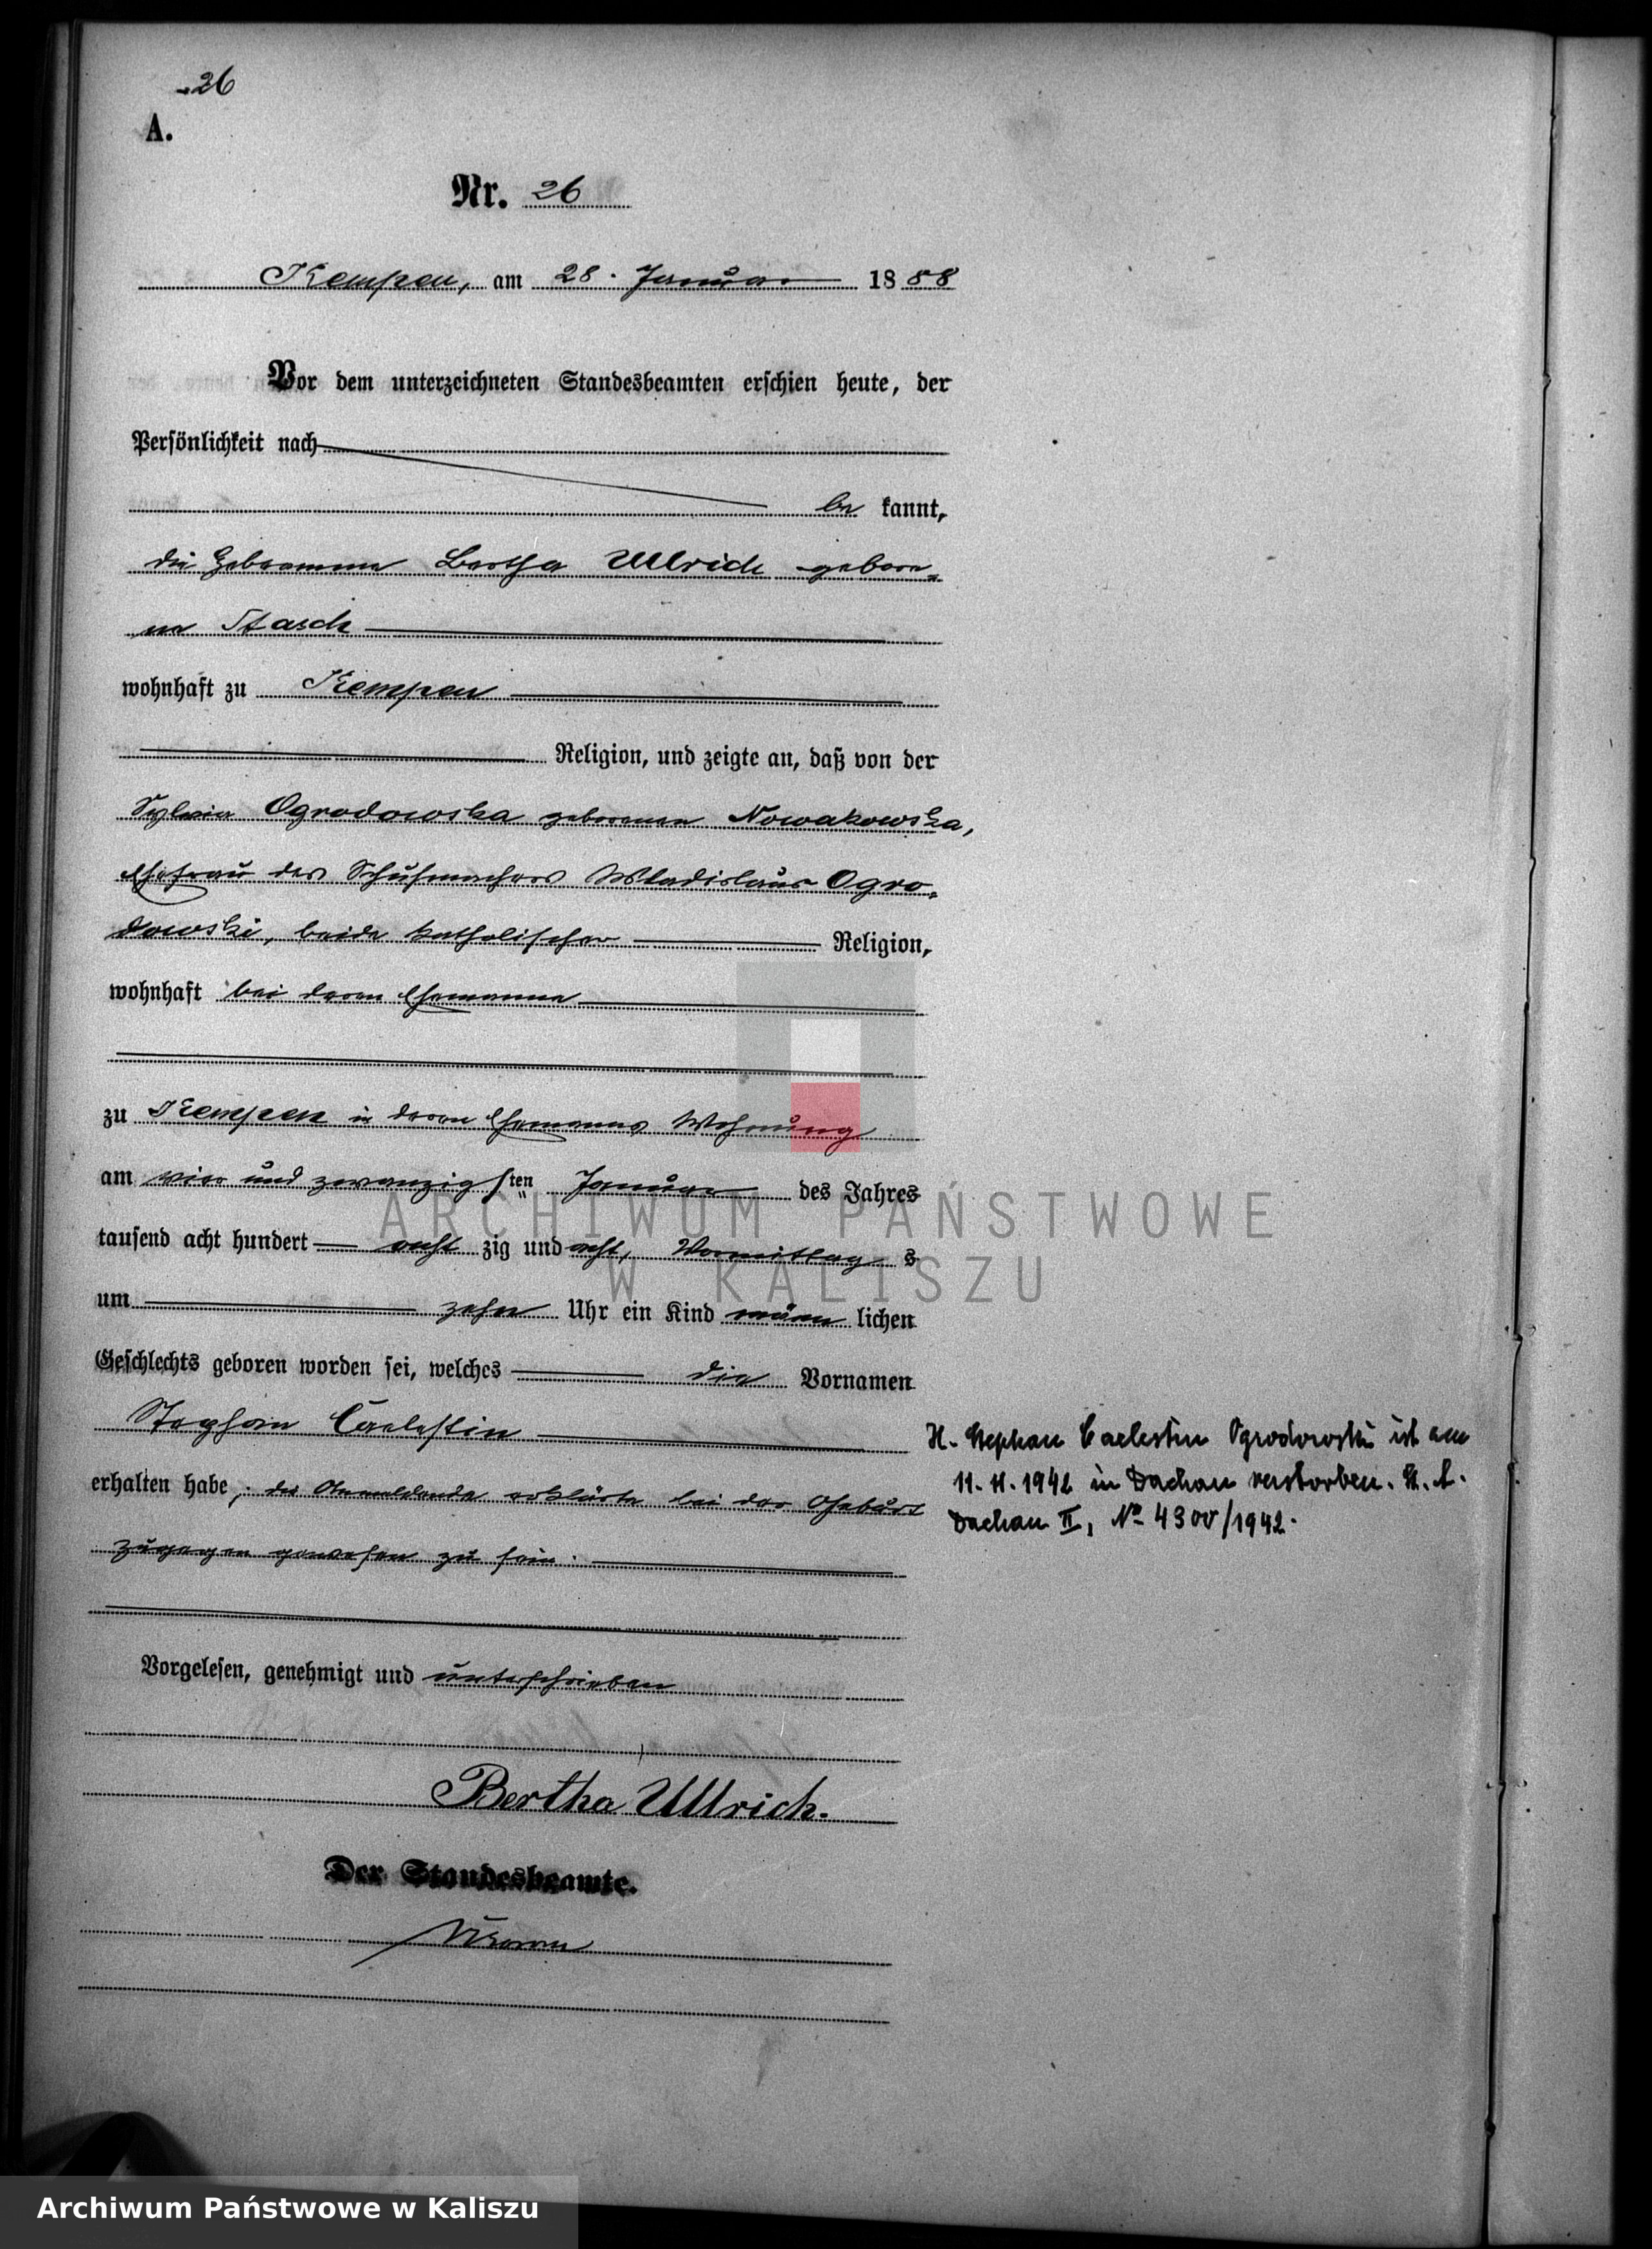 26
A.
Nr. 26
Kempen, am 28. Januar 1888
Vor dem unterzeichneten Standesbeamten erschien heute, der
Persönlichkeit nach
be kannt,
die Hebamme Bertha Ullrich gebore=
ne Stasch
wohnhaft zu Kempen
Religion, und zeigte an, daß von der
Sylvia Ogrodowska geborenen Nowakowska,
Ehefrau des Schuhmachers Wladislaus Ogro=
dowski, beide katholischer Religion,
wohnhaft bei deren Ehemanne
zu Kempen in deren Ehemanns Wohnung
am vier und zwanzigsten Januar des Jahres
tausend acht hundert acht zig und acht, Vormittag s
um zehn Uhr ein Kind männ lichen
Geschlechts geboren worden sei, welches die Vornamen
Stephan Caelestin
erhalten habe; die Anmeldende erklärte bei der Geburt
zugegen gewesen zu sein.
Vorgelesen, genehmigt und unterschrieben
Bertha Ullrich.
Der Standesbeamte.
Stephan Caelestin Ogrodowski ist am
11. 11. 1942 in Dachau verstorben. St. A.
Dachau II, No 4300/1942.
ARCHIWUM PAŃSTWOWE
W KALISZU
Archiwum Państwowe w Kaliszu